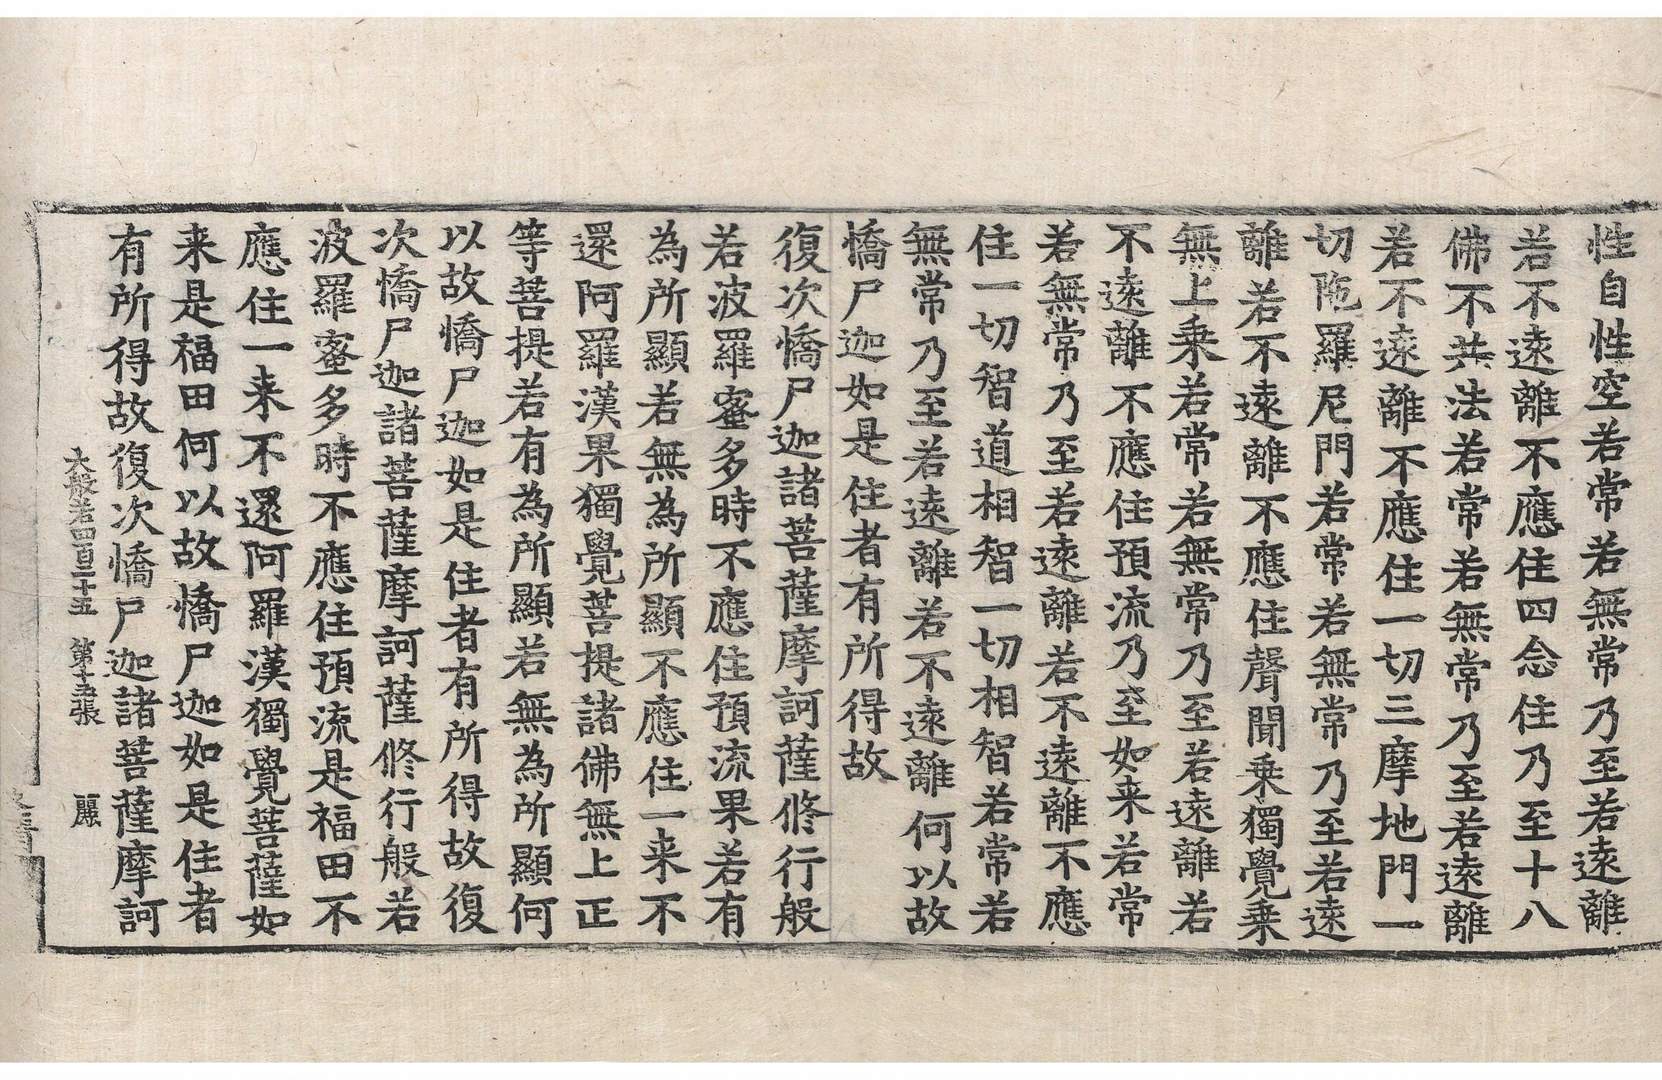 性自性空若常若無常乃至若遠離
若不遠離不應住四念住乃至十八
佛不共法若常若無常乃至若遠離
若不遠離不應住一切三摩地門一
切陁羅尼門若常若無常乃至若遠
離若不遠離不應住聲聞乗獨覺乗
無上乗若常若無常乃至若遠離若
不遠離不應住預流乃至如来若常
若無常乃至若遠離若不遠離不應
住一切智道相智一切相智若常若
無常乃至若遠離若不遠離何以故
憍尸迦如是住者有所得故
復次憍尸迦諸菩薩摩訶薩修行般
若波羅蜜多時不應住預流果若有
為所顯若無為所顯不應住一来不
還阿羅漢果獨覺菩提諸佛無上正
等菩提若有為所顯若無為所顯何
以故憍尸迦如是住者有所得故復
次憍尸迦諸菩薩摩訶薩修行般若
波羅蜜多時不應住預流是福田不
應住一来不還阿羅漢獨覺菩薩如
来是福田何以故憍尸迦如是住者
有所得故復次憍尸迦諸菩薩摩訶
大般若四百二十五 第十五張 麗